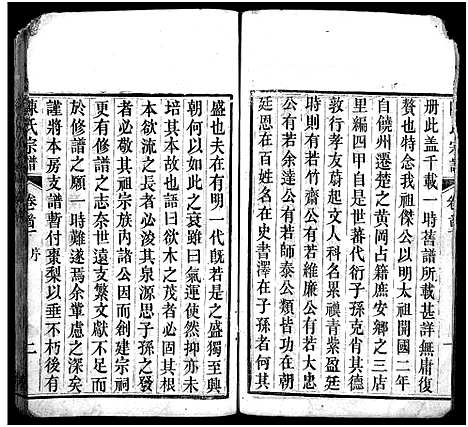 冊此盖千載一時舊譜所載甚詳無庸復
贅也特念我祖傑公以明太祖開國二年
自饒州遷楚之黄岡占籍庶安鄉之三店
里編四甲子是世蕃代衍子孫克肖其德
敦行孝友蔚起文人科名累禩青紫盈朝
時則有若竹齋公有若維廉公有若大忠
公有若余達公有若師泰公類皆功在朝
廷恩在百姓名在史書澤在子孫者何其
盛也夫在有明一代既若是之盛獨至興
朝何以之衰雖曰氣運使然抑亦後人未
培其本故也語曰欲木之茂者必固其根
本欲流之長者必浚其泉源思子孫之發
者必敬其祖宗族内諸公因而創建宗祠
更有修譜之志奈世遠支繁文獻不足由
於修譜之願一時難遂焉余輩慮之深矣
謹將本房支譜暫付棗梨以垂不朽後有
陳氏宗譜
卷首
序
二